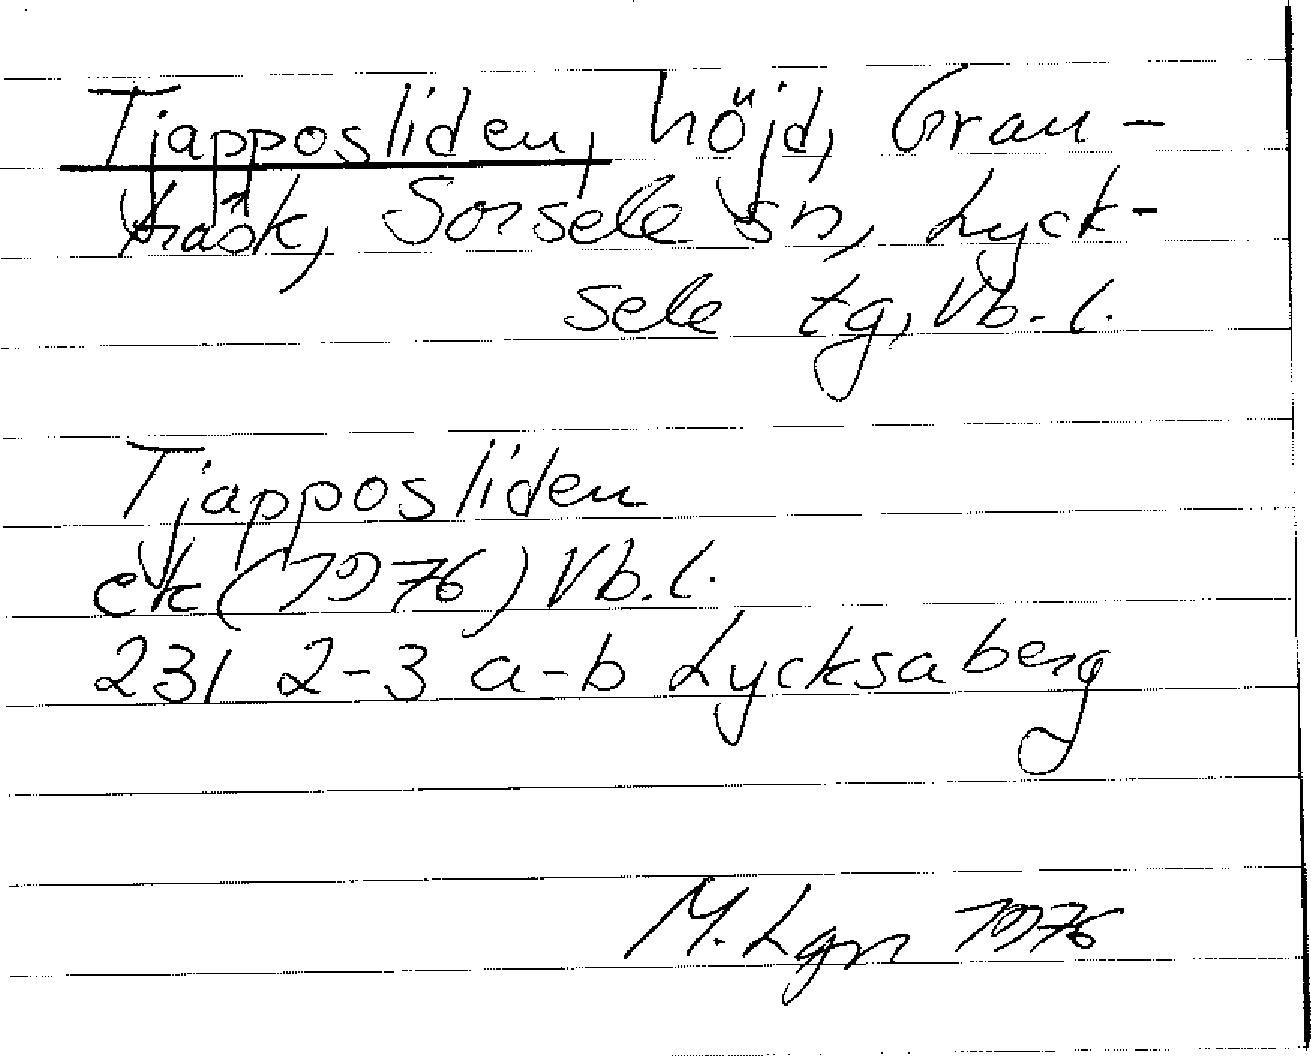 Tjapposliden, höjd, Gran-
träsk, Sorsele sn, Lyck-
sele tg, Vb. l.
Tjapposliden
ek (1976) Vb. l.
23I 2-3 a-b Lycksaberg
M. Lgn 1976